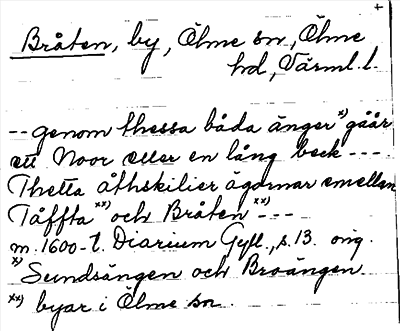 +
Bråten, by, Ölme sn, Ölme
hd, Värml. l.
-- genom thessa båda änger x) gåår
ett Noor eller en lång beck ---
Thetta åthskilier ägomar emellan
Tåffta xx) och Bråten xx) ---
m. 1600-t. Diarium Gyll., s. 13. orig.
x) Sundsängen och Broängen.
xx) byar i Ölme sn.